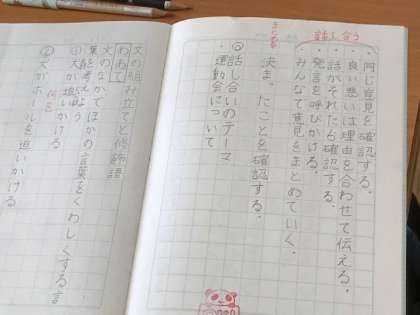 話し合う
・同じ意見を確認する。
・良い悪いは理由を合わせて伝える。
・話がそれたら確認する。
・発言を呼びかける。
・みんなで意見をまとめていく。
決まったことを確認する。
◎話し合いのテーマ
・運動会について
文の組み立てと修飾語
めあて
文のなかでほかの言葉をくわしくする言
葉を考えよう
①犬が追いかける
何を
②犬がボールを追いかける